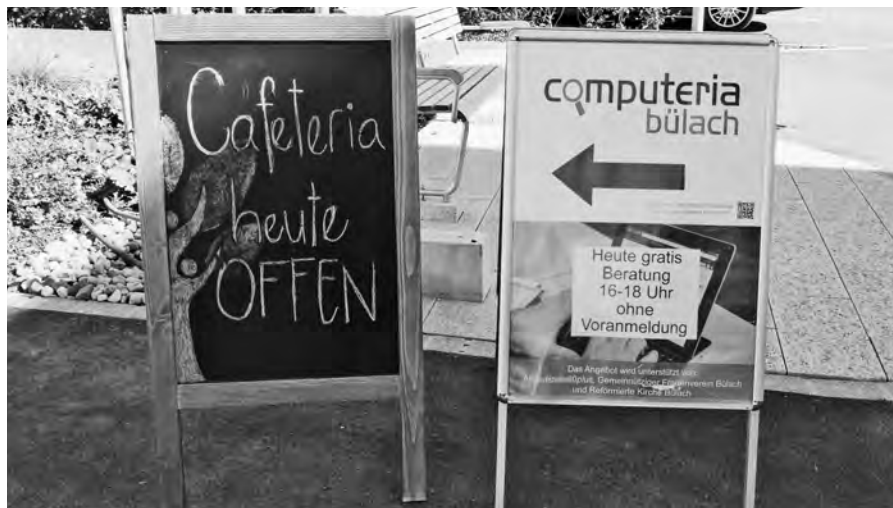 Cafeteria
heute
OFFEN
computeria
bülach
Heute gratis
Beratung
16-18 Uhr
ohne
Voranmeldung
Das Angebot wird unterstützt von:
Gemeinnütziger Frauenverein Bülach
und Reformierte Kirche Bülach